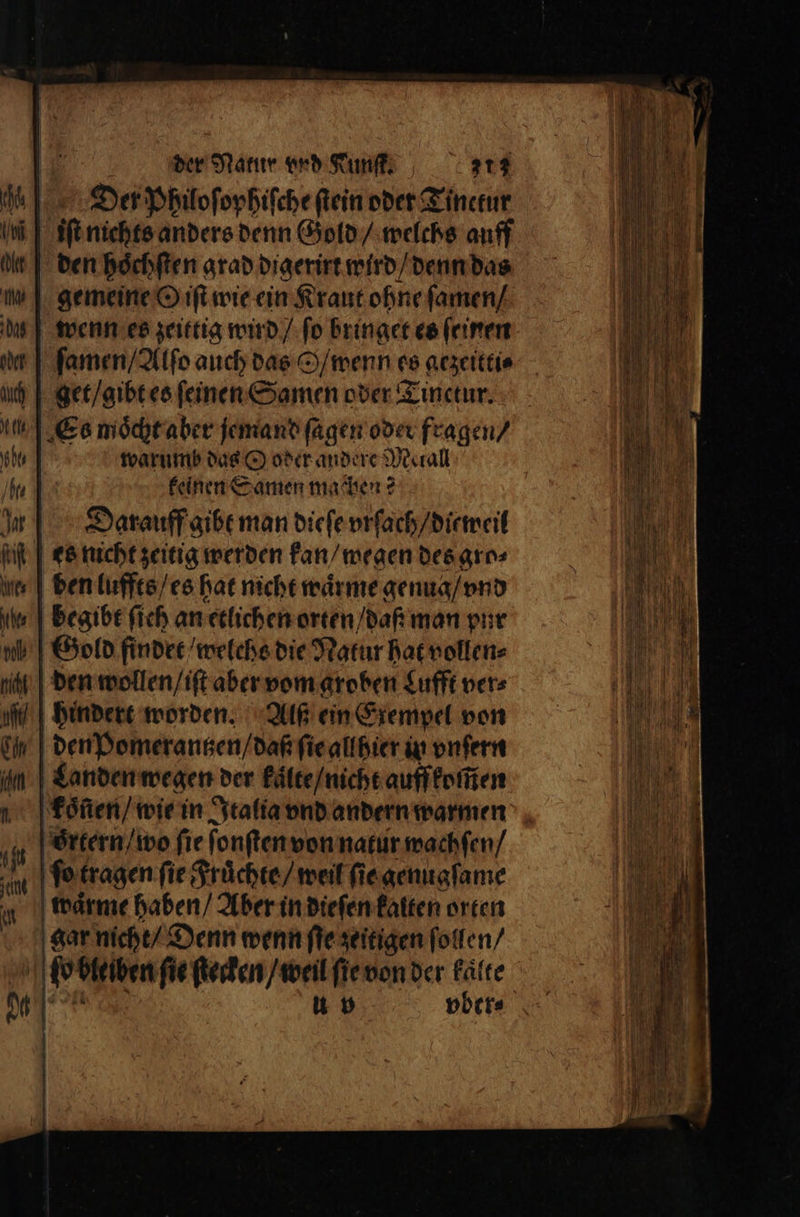 der Natur vnd Kunſt. 313
Der Philoſophiſche ſtein oder Tinctur
iſt nichts anders denn Gold / welchs auff
den hoͤchſten grad digerirt wird / denn das
gemeine ☉ iſt wie ein Kraut ohne ſamen /
wenn es zeittig wird / ſo bringet es ſeinen
ſamen / Alſo auch das ☉ / wenn es gezeitti⸗
get / gibt es ſeinen Samen oder Tinctur.
Es moͤcht aber jemand ſagen oder fragen /
warumb das ☉ oder andere Metall
keinen Samen machen?
Darauff gibt man dieſe vrſach / dieweil
es nicht zeitig werden kan / wegen des gro⸗
ben luffts / es hat nicht waͤrme genug / vnd
begibt ſich an etlichen orten / daß man pur
Gold findet / welchs die Natur hat vollen⸗
den wollen / iſt aber vom groben Lufft ver⸗
hindert worden. Alß ein Exempel von
den Pomerantzen / daß ſie allhier in vnſern
Landen wegen der kaͤlte / nicht auffkom̃en
koͤñen / wie in Italia vnd andern warmen
oͤrtern / wo ſie ſonſten von natur wachſen /
ſo tragen ſie Fruͤchte / weil ſie genugſame
waͤrme haben / Aber in dieſen kalten orten
gar nicht / Denn wenn ſie zeitigen ſollen /
ſo bleiben ſie ſtecken / weil ſie von der kaͤlte
u v vber⸗